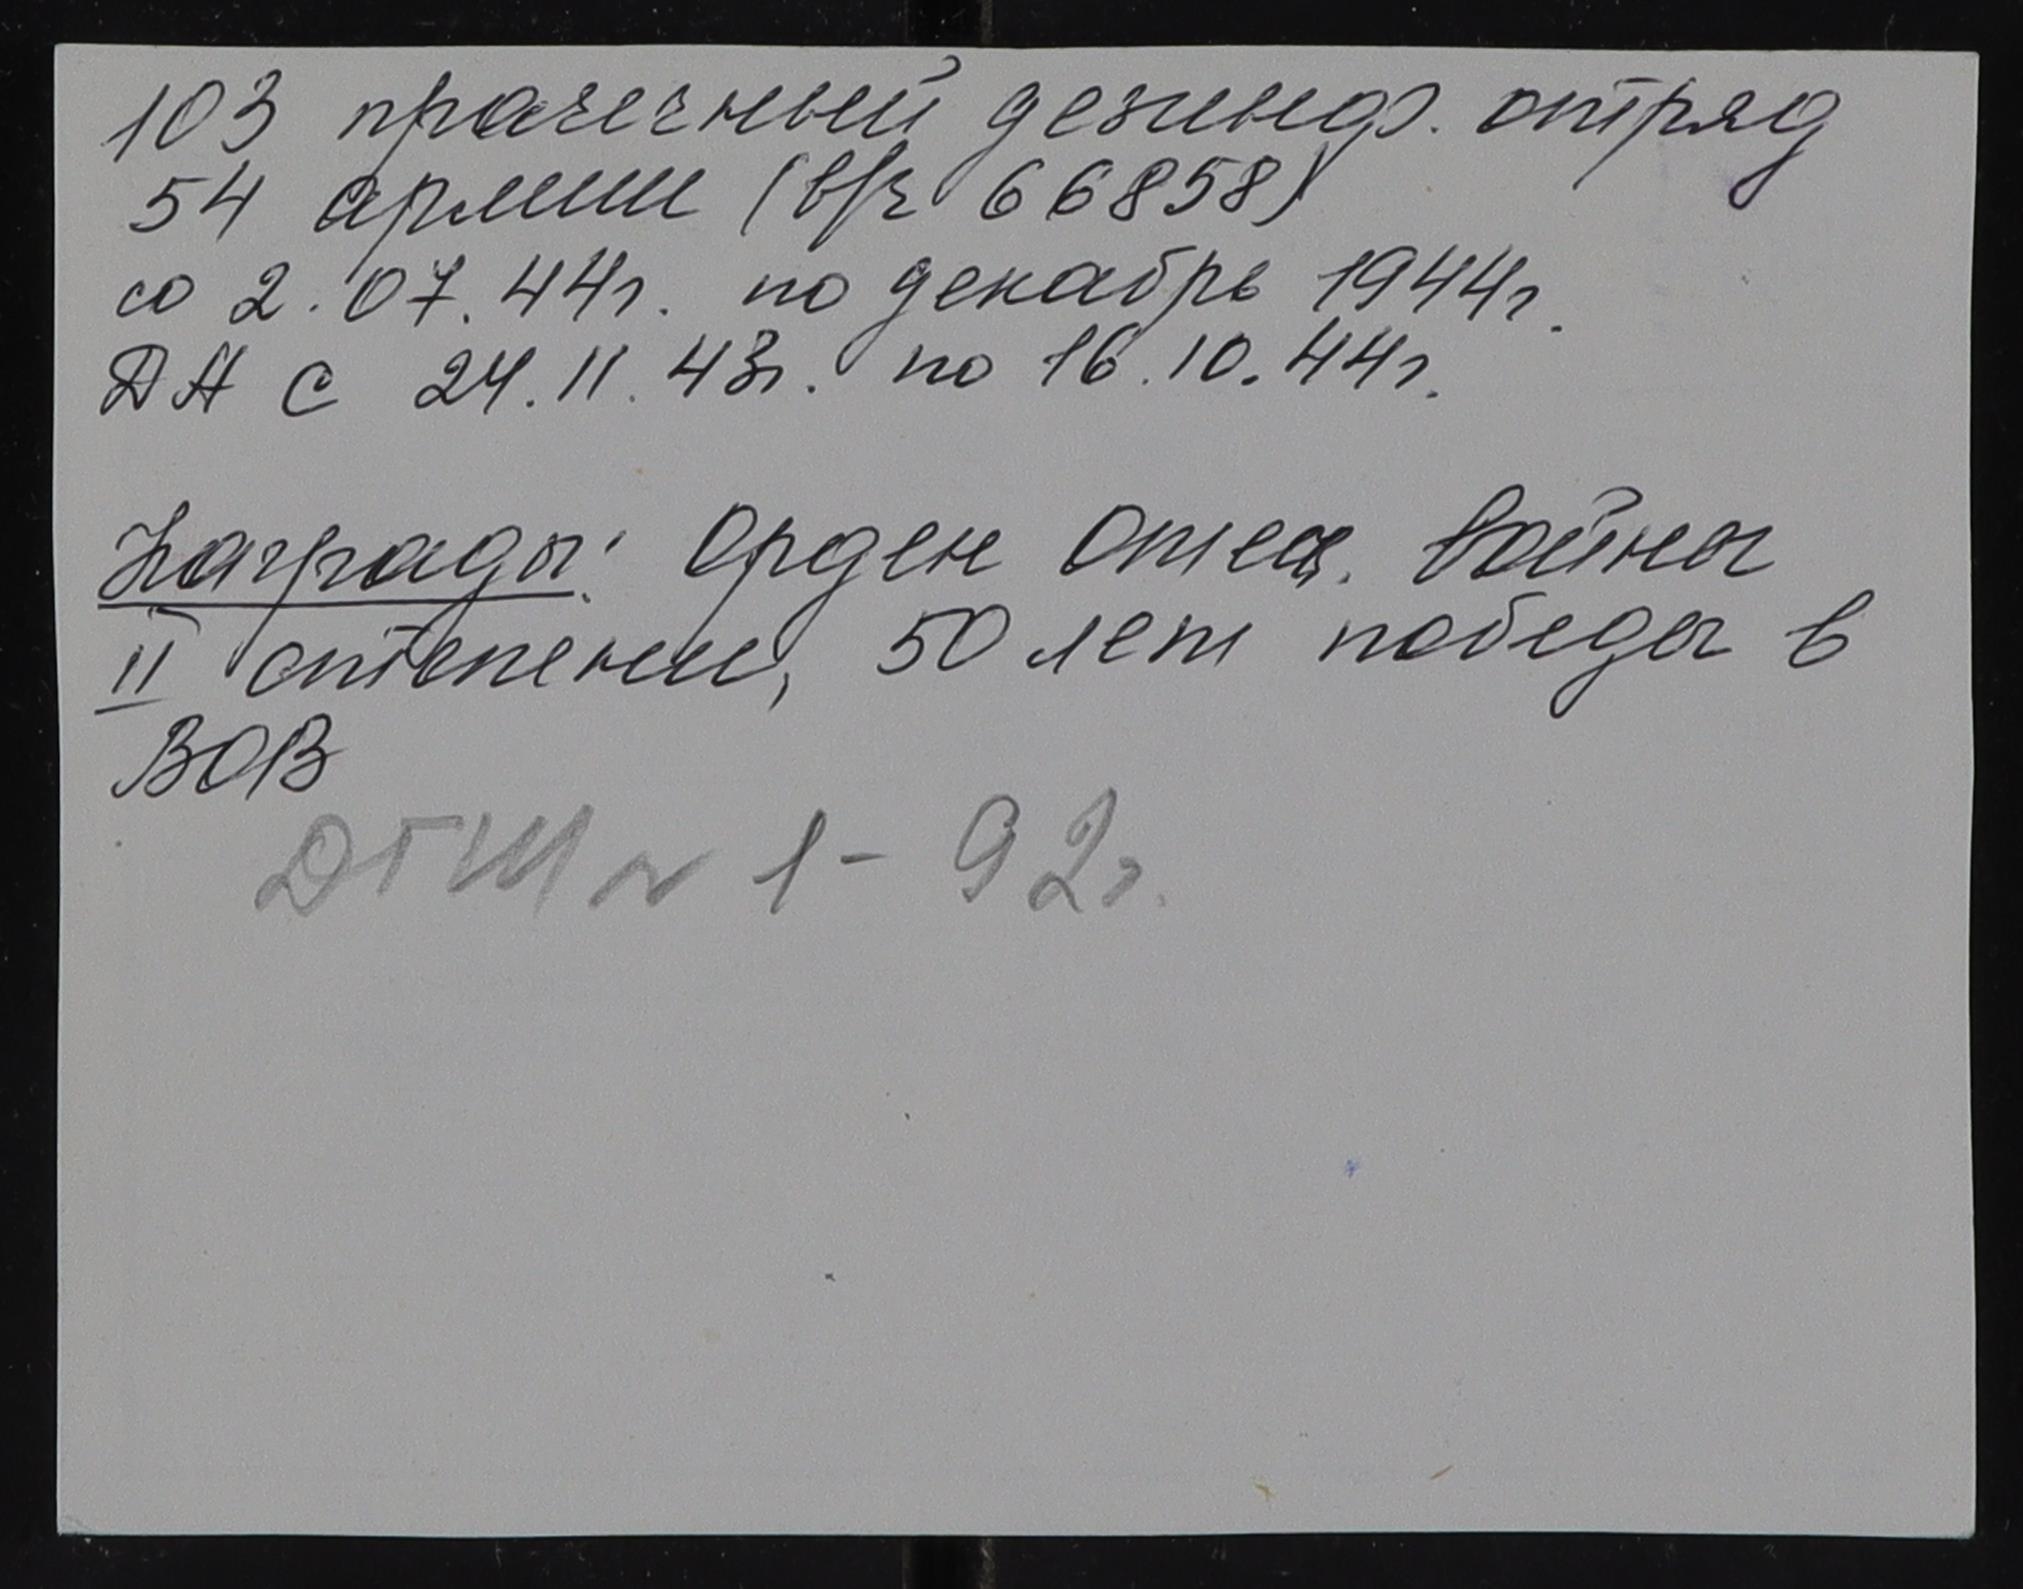 103 прачечный дезинф. отряд
54 армии (в/ч 66858)
со 2.07.44г. по декабрь 1944г.
ДА с 24.11.43г. по 16.10.44г.
Награды: Орден Отеч. Войны
II степени, 50 лет победы в
ВОВ
ДГШ № 1-92г.